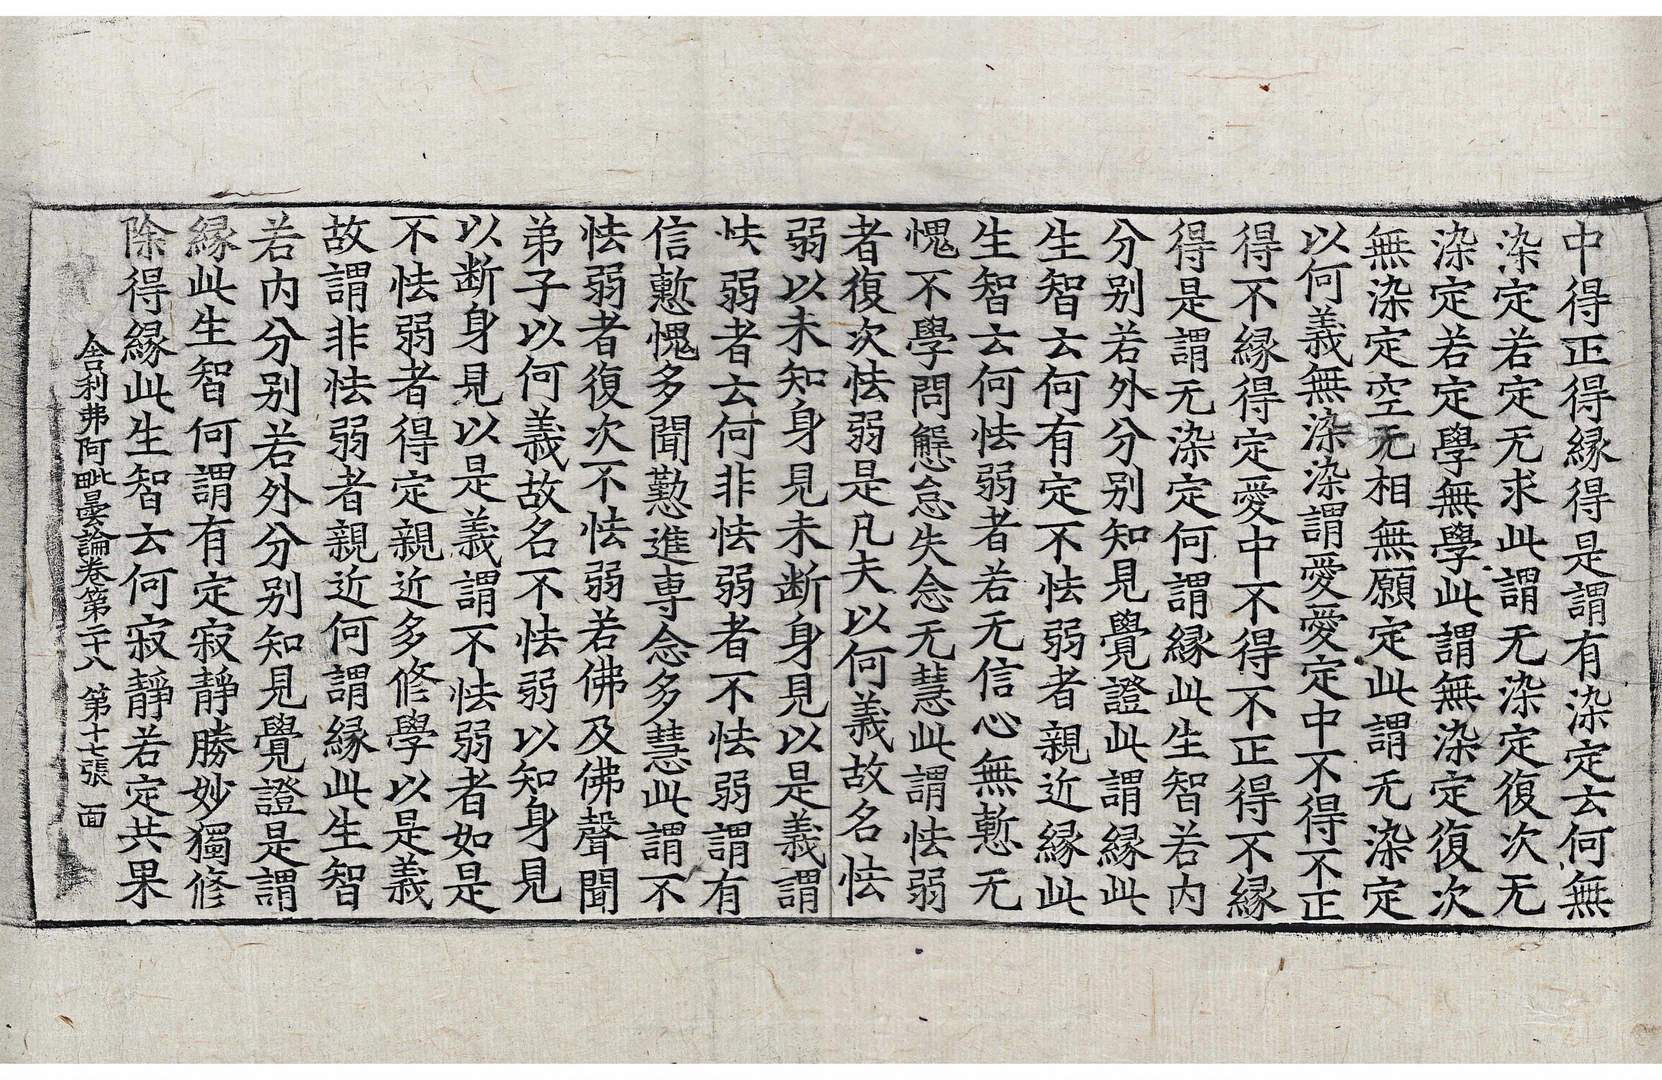 中得正得縁得是謂有染定云何無
染定若定无求此謂无染定復次无
染定若定學無學此謂無染定復次
無染定空无相無願定此謂无染定
以何義無染染謂愛愛定中不得不正
得不縁得定愛中不得不正得不縁
得是謂无染定何謂縁此生智若内
分別若外分別知見覺證此謂縁此
生智云何有定不怯弱者親近縁此
生智云何怯弱者若无信心無慙无
愧不學問懈怠失念无慧此謂怯弱
者復次怯弱是凡夫以何義故名怯
弱以未知身見未断身見以是義謂
怯弱者云何非怯弱者不怯弱謂有
信慙愧多聞勤進専念多慧此謂不
怯弱者復次不怯弱若佛及佛聲聞
弟子以何義故名不怯弱以知身見
以断身見以是義謂不怯弱者如是
不怯弱者得定親近多修學以是義
故謂非怯弱者親近何謂縁此生智
若内分別若外分別知見覺證是謂
縁此生智何謂有定寂靜勝妙獨修
除得縁此生智云何寂靜若定共果
舍利弗阿毗曇論卷第二十八 第十七張 面